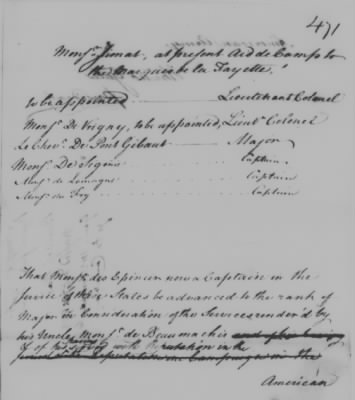 471
Monsr. Gimat, at present Aid de Camp to
the Marquis de la Fayette,
to be appointed Lieutenant Colonel
Monsr. De Vrigny, to be appointed, Lieut. Colonel
Le Chevr. De Pont Gibaut Major
Monsr. De Captain
Monsr. de Captain
Monsr. du Captain
That Monsr. des Epiniers now a Captain in the
Service of these States be advanced to the rank of
Major in Consideration of the Services rendered by
his Uncle Monsr. de Beaumarchais
of his with the
in the
American